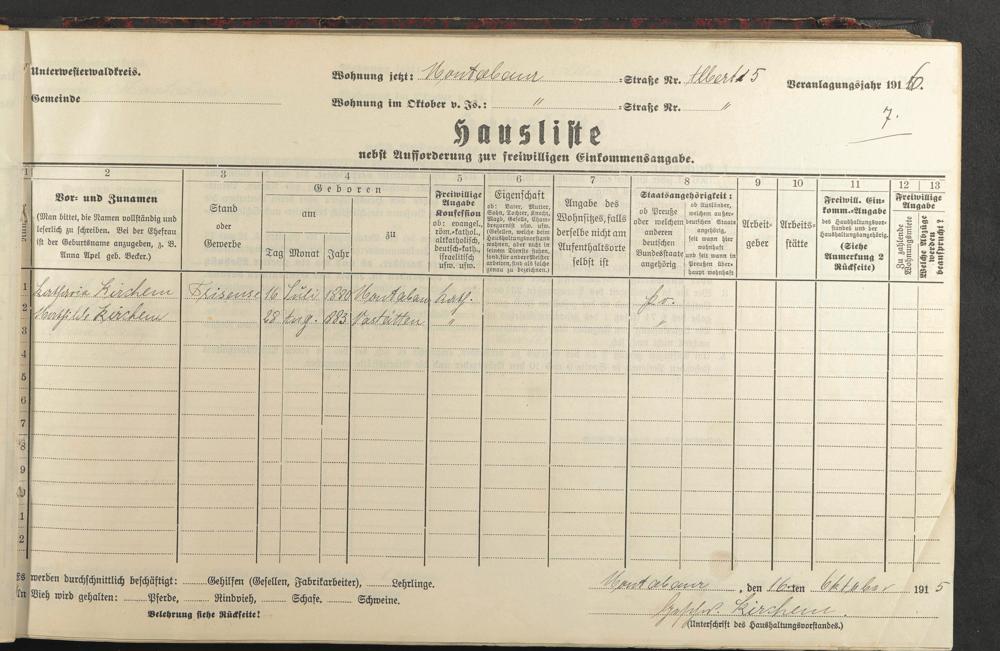 Unterwesterwaldkreis.
Wohnung jetzt: Montabaur =Straße Nr. Albert 15
Veranlagungsjahr 1916.
Gemeinde
Wohnung im Oktober v. Js.: " =Straße Nr. "
7.
Hausliste
nebst Aufforderung zur freiwilligen Einkommensangabe.
1 2 3 4 5 6 7 8 9 10 11 12 13
Vor- und Zunamen
(Man bittet, die Namen vollständig und
leserlich zu schreiben. Bei der Ehefrau
ist der Geburtsname anzugeben, z. B.
Anna Apel geb. Becker.)
Stand
oder
Gewerbe
Geboren
am
zu
Tag Monat Jahr
Freiwillige
Angabe
Konfession
ob: evangel.,
röm.-kathol.,
altkatholisch,
deutsch-kath.,
israelitisch
usw. usw.
Eigenschaft
ob: Vater, Mutter,
Sohn, Tochter, Knecht,
Magd, Geselle,
Angabe des
Wohnsitzes, falls
derselbe nicht am
Aufenthaltsorte
selbst ist
Staatsangehörigkeit:
ob Preuße
oder welchem
anderen
deutschen
Bundesstaate
angehörig
ob Ausländer,
welchem außer-
deutschen Staate
angehörig,
seit wann hier
wohnhaft
und seit wann in
Preußen über-
haupt wohnhaft
Arbeit-
geber
Arbeits-
stätte
Freiwill. Ein-
komm.-Angabe
des Haushaltungsvor-
standes und der
Haushaltungsangehörig.
(Siehe
Anmerkung 2
Rückseite)
Freiwillige
Angabe
Zu zahlende
Wohnungsmiete
Welche Abzüge
werden
beansprucht?
1 Kirchem 16 Juli 1880 Montabaur kath. Pr.
2 Kirchem 28 Aug. 1883 Nastätten " "
4
5
6
7
8
9
1
2
Es werden durchschnittlich beschäftigt: Gehilfen (Gesellen, Fabrikarbeiter), Lehrlinge.
An Vieh wird gehalten: Pferde, Rindvieh, Schafe. Schweine.
Belehrung siehe Rückseite!
Montabaur, den 16ten Oktober 1915
Geschw. Kirchem.
(Unterschrift des Haushaltungsvorstandes.)